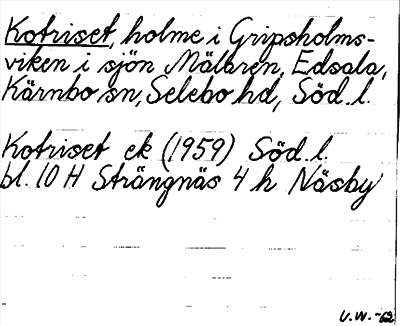 Kotriset, holme i Gripsholms-
viken i sjön Mälaren, Edsala,
Kärnbo sn, Selebo hd, Söd. l.
Kotriset ek (1959) Söd. l.
bl. 10 H Strängnäs 4 h Näsby
U.W.-62